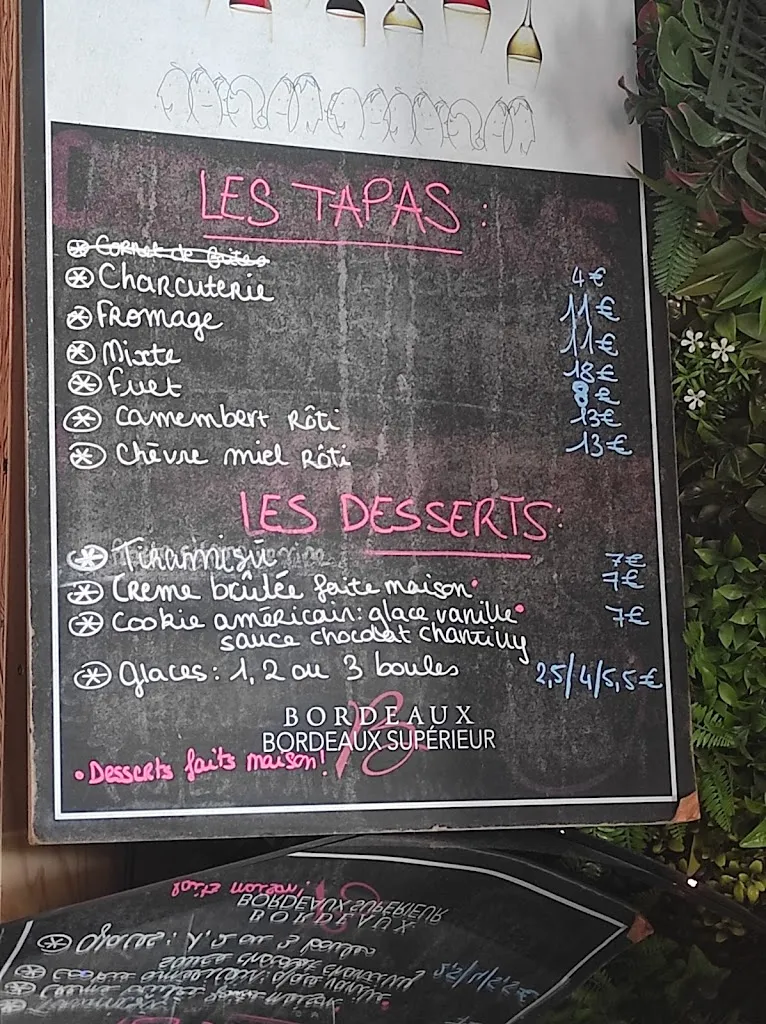 LES TAPAS :
Cornet de frites 4€
Charcuterie 11€
Fromage 11€
Mixte 18€
Fuet 8€
Camembert Rôti 13€
Chèvre miel Rôti 13€
LES DESSERTS :
Tiramisu 7€
Creme brûlée faite maison• 7€
Cookie américain: glace vanille• 7€
sauce chocolat chantilly
Glaces: 1, 2 ou 3 boules 2,5/4/5,5€
B
BORDEAUX
BORDEAUX SUPÉRIEUR
•Desserts faits maison!